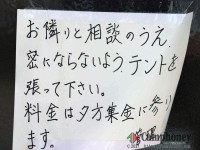 お隣りと相談のうえ、
密にならないよう、テントを
張って下さい。
料金は夕方集金に参り
ます。